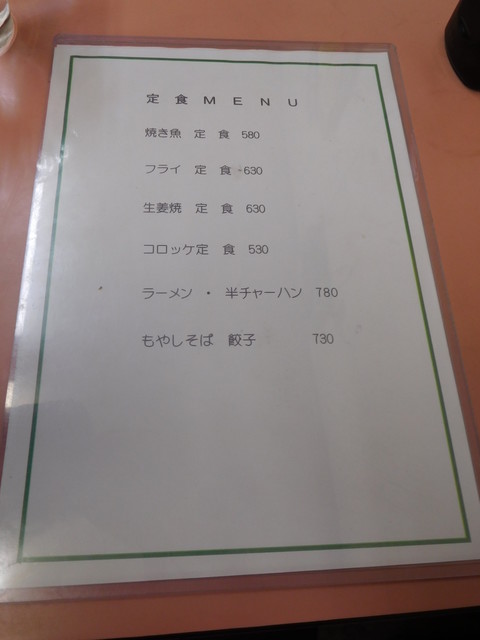 定 食 M E N U
焼き魚 定 食 580
フライ 定 食 630
生姜焼 定 食 630
コロッケ定 食 530
ラーメン ・ 半チャーハン 780
もやしそば 餃子 730